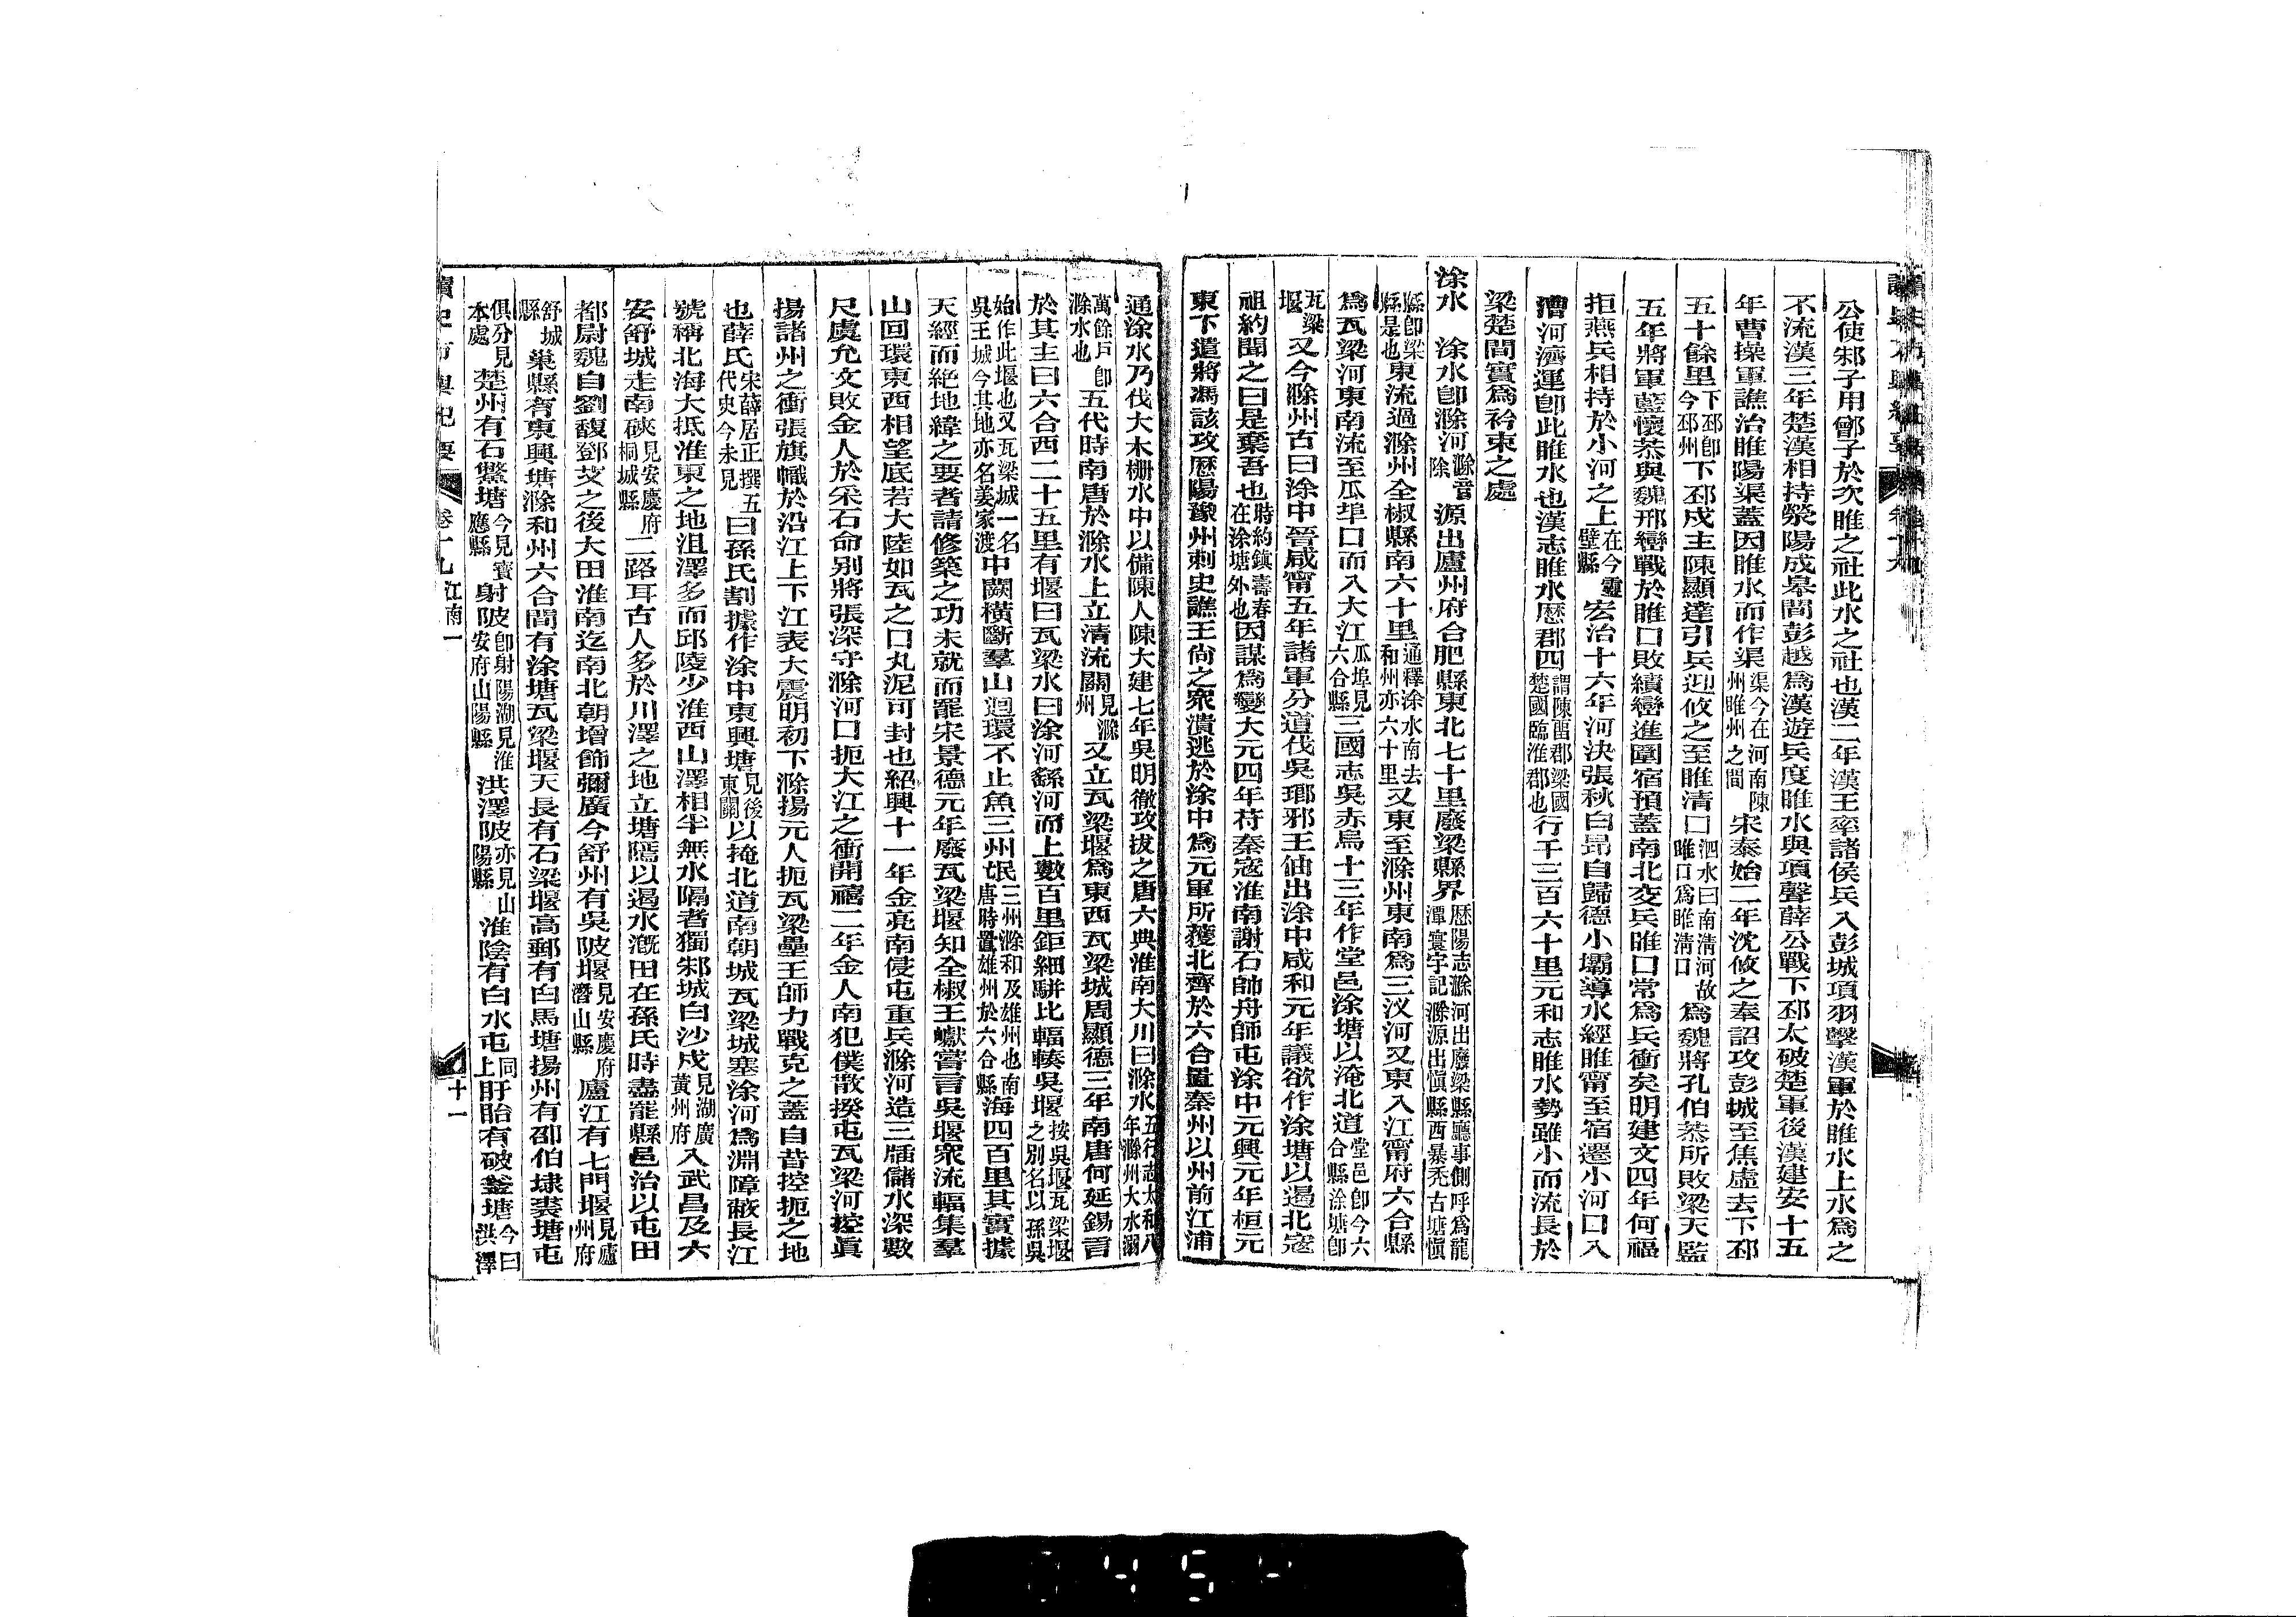 公使邾子用鄫子於次睢之社此水之社也漢二年漢王率諸侯兵入彭城項羽擊漢軍於睢水上水爲之
不流漢三年楚漢相持滎陽成皋間彭越爲漢遊兵度睢水與項聲薛公戰下邳大破楚軍後漢建安十五
年曹操軍譙治睢陽渠蓋因睢水而作渠渠今在河南陳州睢州之間宋泰始二年沈攸之奉詔攻彭城至焦虛去下邳
五十餘里下邳卽今邳州下邳戍主陳顯達引兵迎攸之至睢清口泗水曰南清河故睢口爲睢清口爲魏將孔伯恭所敗梁天監
五年將軍藍懷恭與魏邢巒戰於睢口敗績巒進圍宿預蓋南北交兵睢口常爲兵衝矣明建文四年何福
拒燕兵相持於小河之上在今靈璧縣宏治十六年河決張秋白昻自歸德小壩導水經睢甯至宿遷小河口入
漕河濟運卽此睢水也漢志睢水歷郡四謂陳畱郡梁國楚國臨淮郡也行千三百六十里元和志睢水勢雖小而流長於
梁楚間實爲衿束之處
涂水　涂水卽滁河滁音除　源出廬州府合肥縣東北七十里廢梁縣界歷陽志滁河出廢梁縣廳事側呼爲龍潭寰宇記滁源出愼縣西暴禿古塘愼
縣卽梁縣是也東流過滁州全椒縣南六十里通釋涂水南去和州亦六十里又東至滁州東南爲三汊河又東入江甯府六合縣
爲瓦梁河東南流至瓜埠口而入大江瓜埠見六合縣三國志吳赤烏十三年作堂邑涂塘以淹北道堂邑卽今六合縣涂塘卽
瓦梁堰又今滁州古曰涂中晉咸甯五年諸軍分道伐吳瑯邪王伷出涂中咸和元年議欲作涂塘以遏北寇
祖約聞之曰是棄吾也時約鎮壽春在涂塘外也因謀爲變大元四年苻秦寇淮南謝石帥舟師屯涂中元興元年桓元
東下遣將馮該攻歷陽豫州刺史譙王尙之衆潰逃於涂中爲元軍所獲北齊於六合置秦州以州前江浦
通涂水乃伐大木柵水中以備陳人陳大建七年吳明徹攻拔之唐六典淮南大川曰滁水五行志太和八年滁州大水溺
萬餘戶卽滁水也五代時南唐於滁水上立清流關見滁州又立瓦梁堰爲東西瓦梁城周顯德三年南唐何延錫言
於其主曰六合西二十五里有堰曰瓦梁水曰涂河繇河而上數百里鉅細駢比輻輳吳堰按吳堰瓦梁堰之別名以孫吳
始作此堰也又瓦梁城一名吳王城今其地亦名姜家渡中闕橫斷羣山迴環不止魚三州氓三州滁和及雄州也南唐時置雄州於六合縣海四百里其實據
天經而絕地緯之要者請修築之功未就而罷宋景德元年廢瓦梁堰知全椒王巘嘗言吳堰衆流輻集羣
山回環東西相望底若大陸如瓦之口丸泥可封也紹興十一年金亮南侵屯重兵滁河造三牐儲水深數
尺虞允文敗金人於采石命別將張深守滁河口扼大江之衝開禧二年金人南犯僕散揆屯瓦梁河控眞
揚諸州之衝張旗幟於沿江上下江表大震明初下滁揚元人扼瓦梁壘王師力戰克之蓋自昔控扼之地
也薛氏宋薛居正撰五代史今未見曰孫氏割據作涂中東興塘見後東關以掩北道南朝城瓦梁城塞涂河爲淵障蔽長江
號稱北海大抵淮東之地沮澤多而邱陵少淮西山澤相半無水隔者獨邾城白沙戍見湖廣黃州府入武昌及六
安舒城走南硤見安慶府桐城縣二路耳古人多於川澤之地立塘隖以遏水漑田在孫氏時盡罷縣邑治以屯田
都尉魏自劉馥鄧艾之後大田淮南迄南北朝增飾彌廣今舒州有吳陂堰見安慶府潛山縣廬江有七門堰見廬州府
舒城縣巢縣有東興塘滁和州六合間有涂塘瓦梁堰天長有石梁堰高郵有白馬塘揚州有邵伯埭裘塘屯
俱分見本處楚州有石鱉塘今見寶應縣射陂卽射陽湖見淮安府山陽縣洪澤陂亦見山陽縣淮陰有白水屯同上盱眙有破釜塘今曰洪澤
讀史方輿紀要　卷十九　江南一　十一